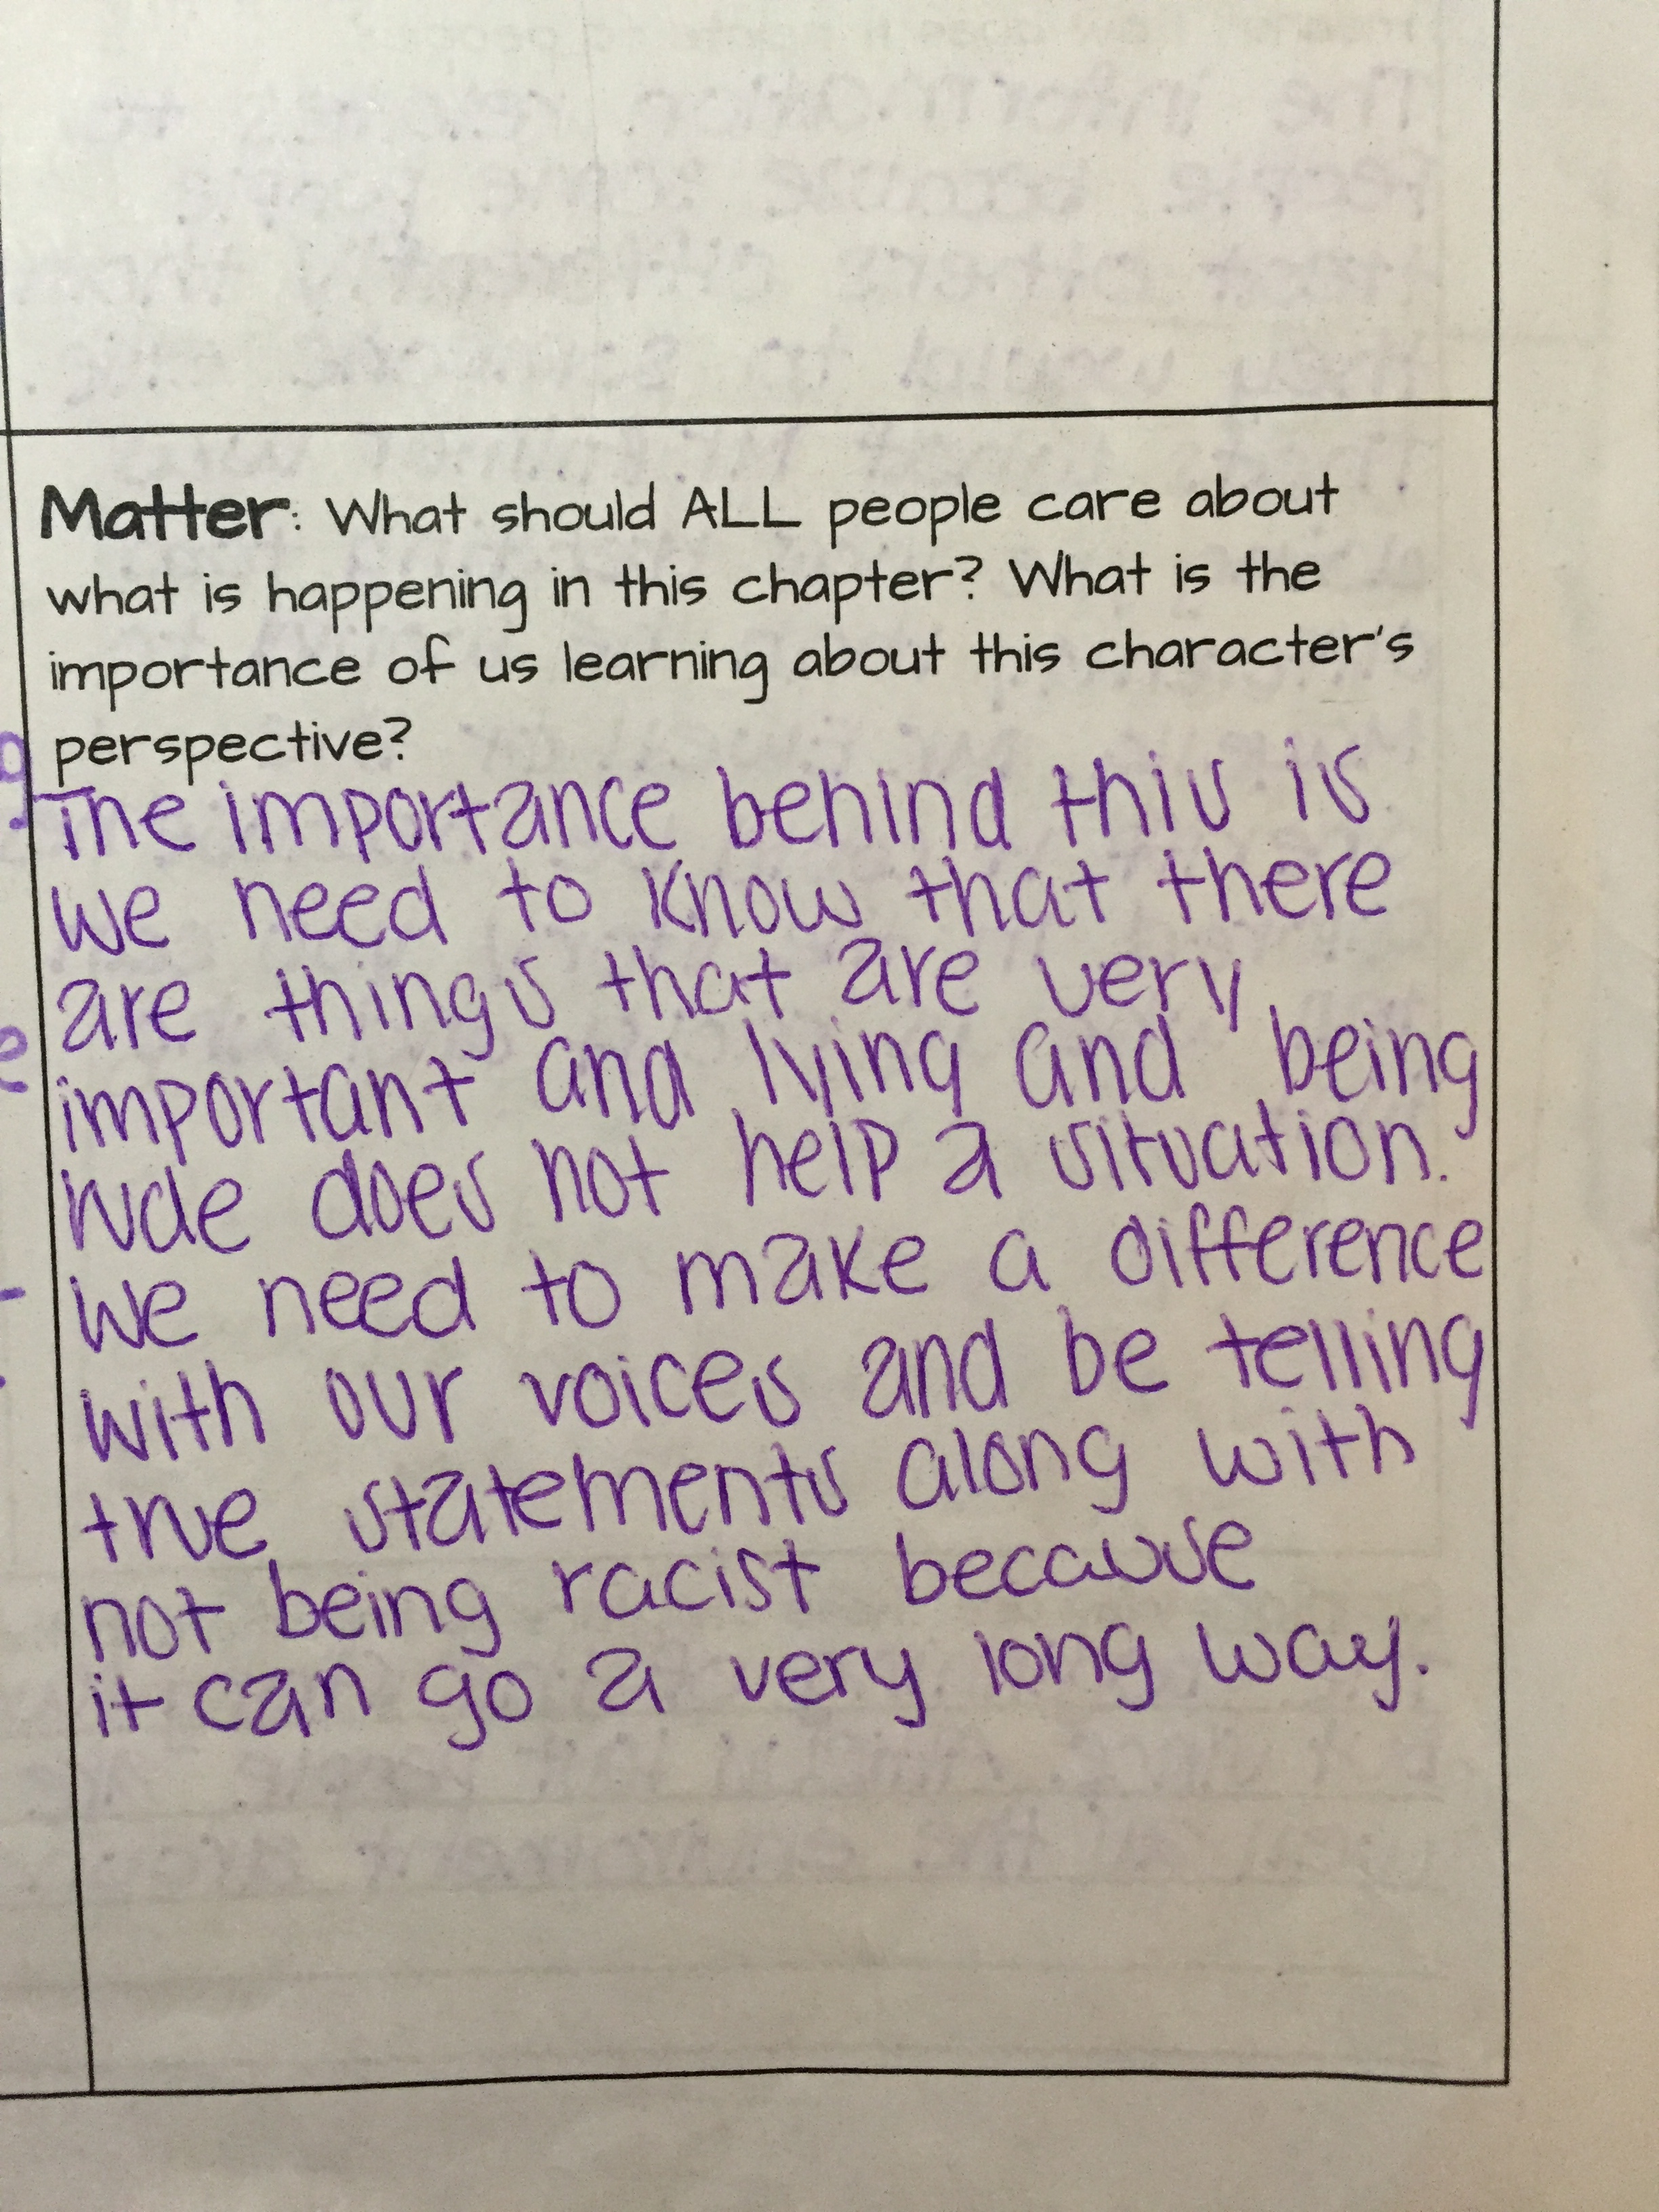 Matter: What should ALL people care about
what is happening in this chapter? What is the
importance of us learning about this character's
perspective?
The importance behind this is
we need to know that there
are things that are very
important and lying and being
rude does not help a situation.
We need to make a difference
with our voices and be telling
true statements along with
not being racist because
it can go a very long way.